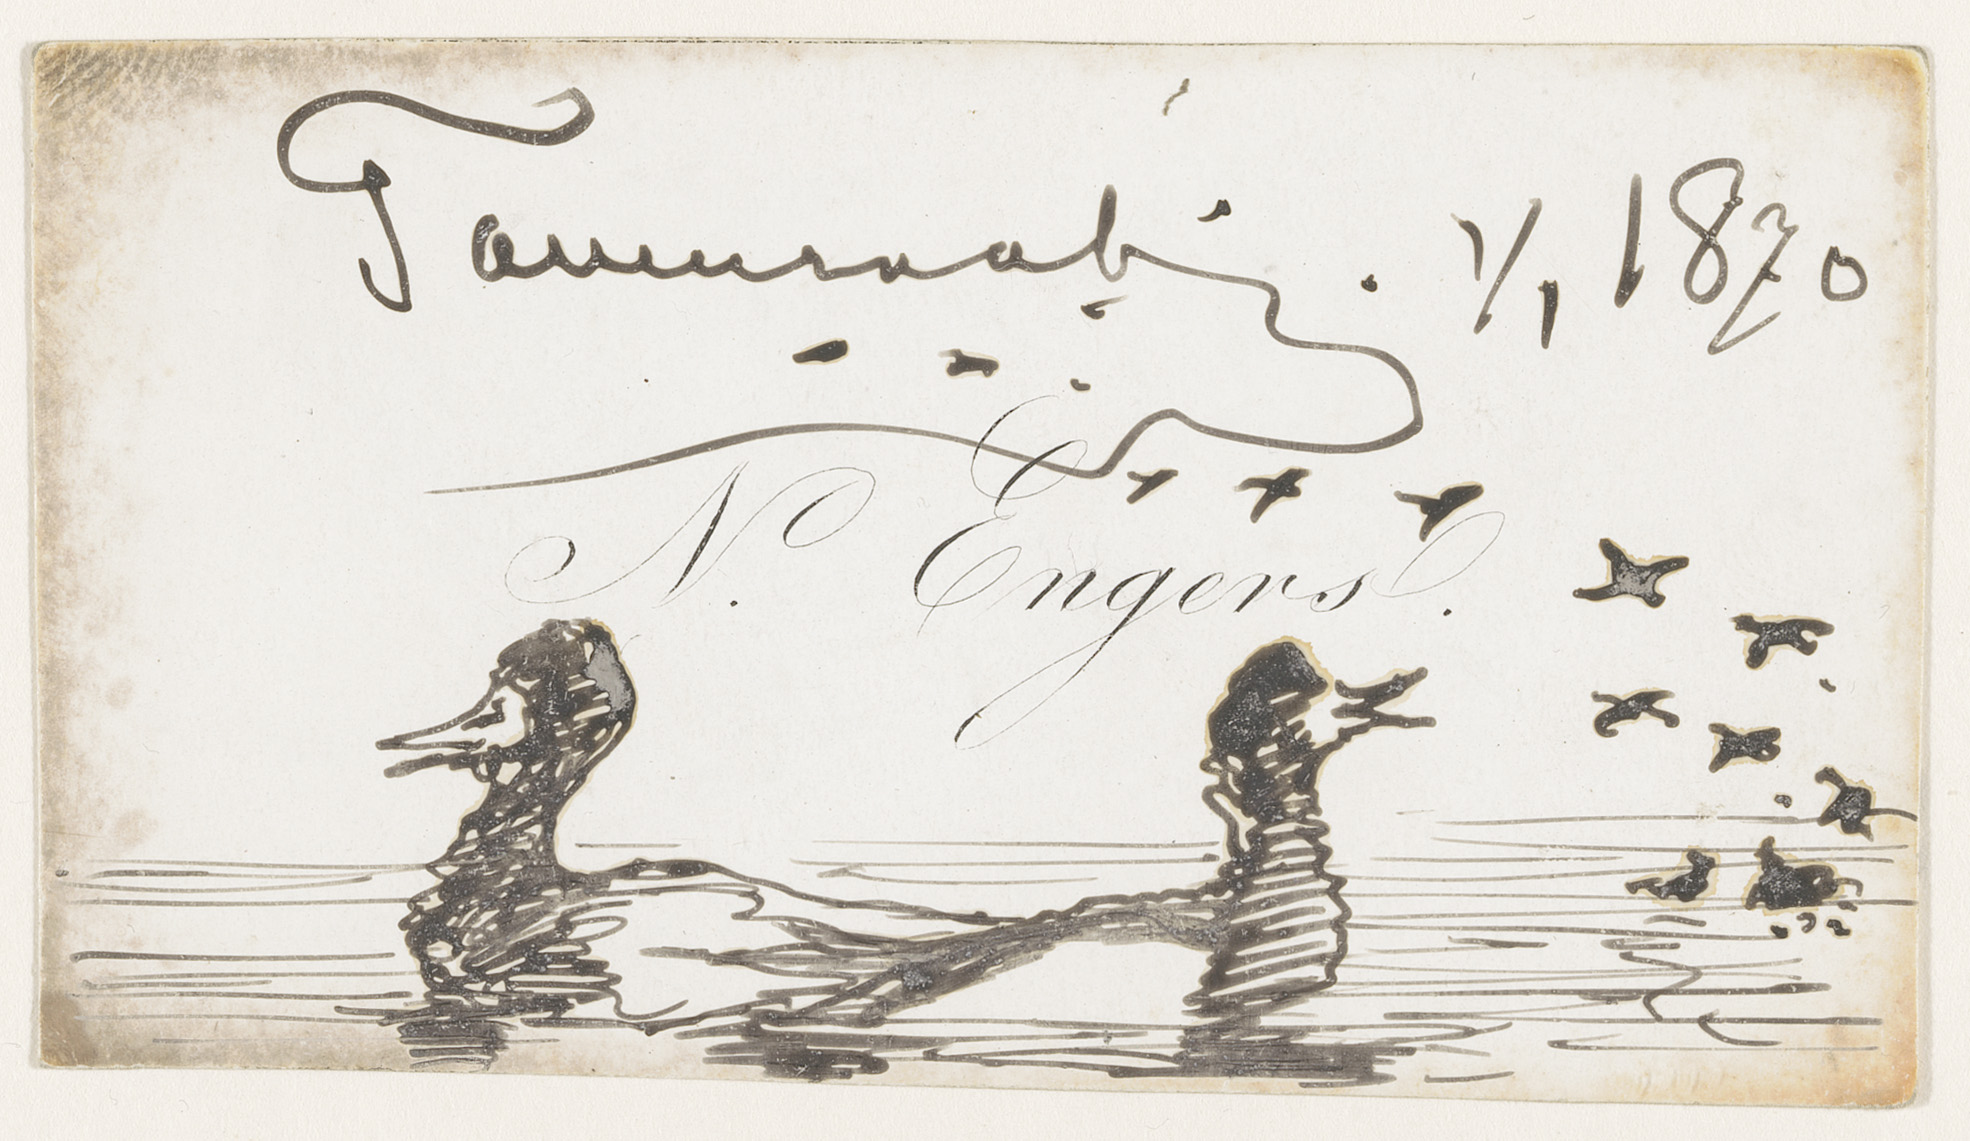 1/1 1870
N. Engers.